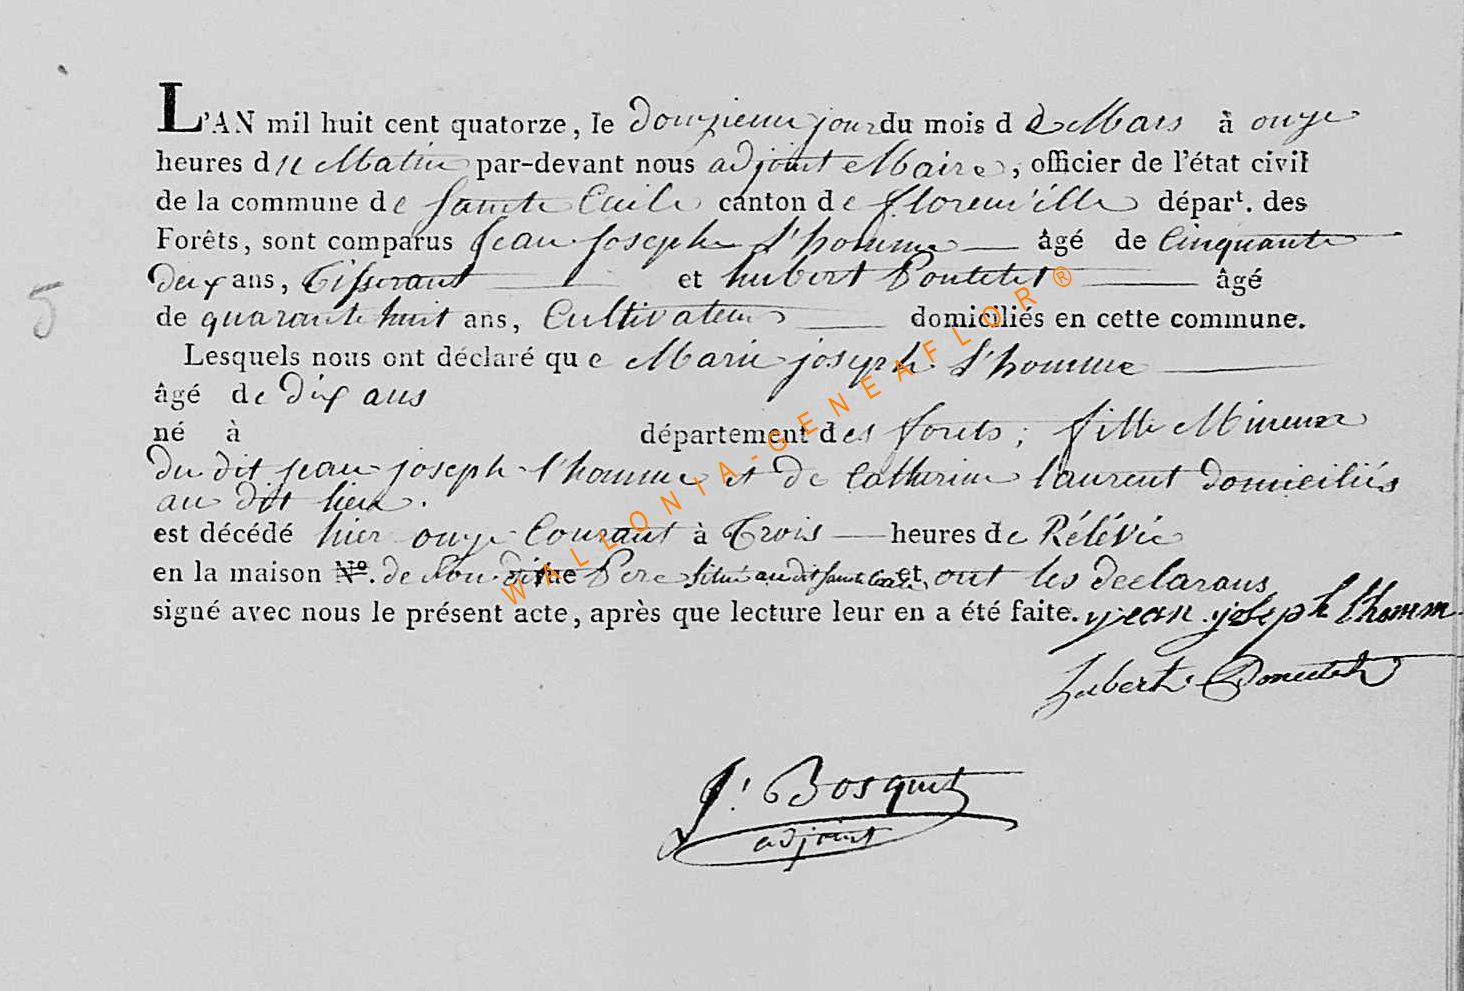 L'AN mil huit cent quatorze, le Douzieme jour du mois d e Mars à onze
heures du Matin par-devant nous adjoint Maire, officier de l'état civil
de la commune de Sainte Cecile canton de florenville départ. des
Forêts, sont comparus Jean Joseph L'homme âgé de Cinquante
deux ans, Tisserant et hubert Pontelet âgé
de quarante huit ans, Cultivateur domiciliés en cette commune.
5
Lesquels nous ont déclaré que Marie joseph L'homme
âgé de Dix ans
né à département des forets; fille Mineure
du dit jean joseph l'homme et de Catherine laurent domiciliés
au dit lieu.
est décédé hier onze Courant à Trois heures de Rélévée
en la maison N°. de son dit rue Pere situé au dit Sainte Cecile et ont les declarans
signé avec nous le présent acte, après que lecture leur en a été faite. jean joseph l'homm
hubert
J. Bosquet
adjoint
WALLONIA-GENEAFLOR®